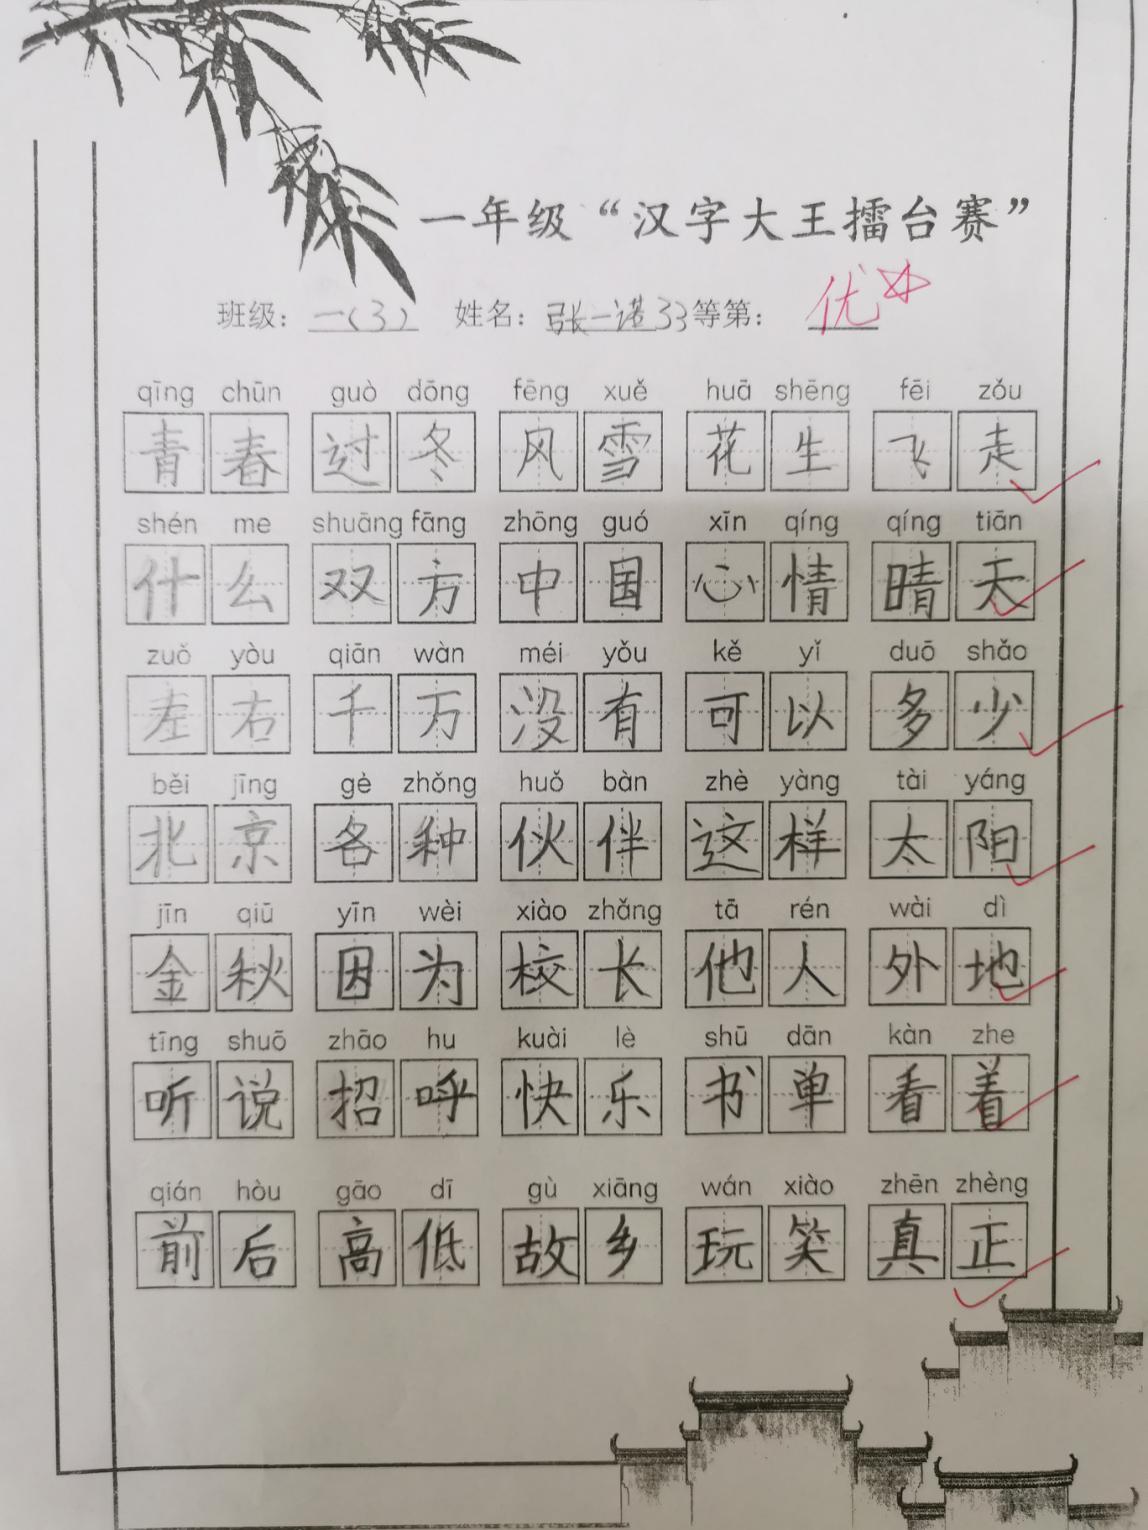 一年级“汉字大王擂台赛”
班级：一(3) 姓名：张一诺33 等第：优
qīng chūn guò dōng fēng xuě huā shēng fēi zǒu
青春 过冬 风雪 花生 飞走
shén me shuāng fāng zhōng guó xīn qíng qíng tiān
什么 双方 中国 心情 晴天
zuǒ yòu qiān wàn méi yǒu kě yǐ duō shǎo
左右 千万 没有 可以 多少
běi jīng gè zhǒng huǒ bàn zhè yàng tài yáng
北京 各种 伙伴 这样 太阳
jīn qiū yīn wèi xiào zhǎng tā rén wài dì
金秋 因为 校长 他人 外地
tīng shuō zhāo hu kuài lè shū dān kàn zhe
听说 招呼 快乐 书单 看着
qián hòu gāo dī gù xiāng wán xiào zhēn zhèng
前后 高低 故乡 玩笑 真正